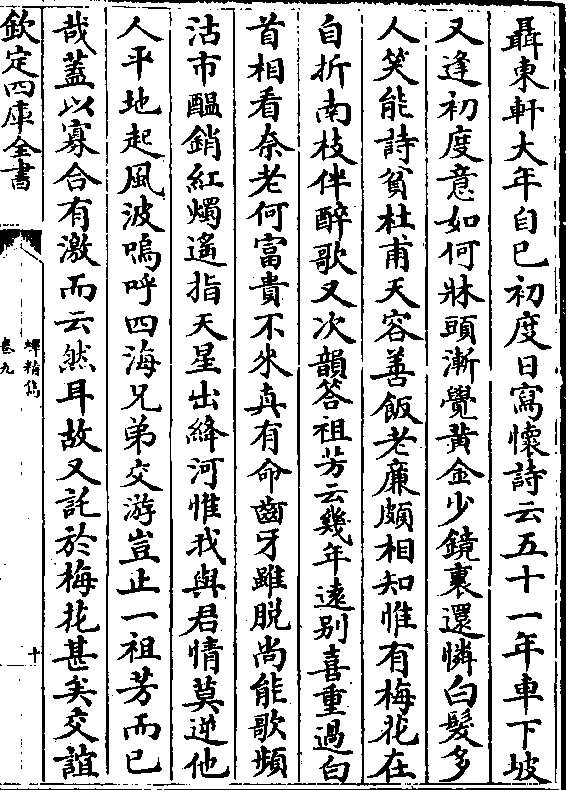 聶東軒大年自已初度日寫懷詩云五十一年車下坡
又逢初度意如何牀頭漸覺黄金少鏡裏還憐白髮多
人笑能詩貧杜甫天容善飯老亷頗相知惟有梅花在
自折南枝伴醉歌又次韻答祖芳云幾年逺别喜重過白
首相看奈老何富貴不来真有命齒牙雖脱尚能歌頻
沽市醖銷紅燭遥指天星出絳河惟我與君情莫逆他
人平地起風波嗚呼四海兄弟交游豈止一祖芳而已
哉蓋以寡合有激而云然耳故又託於梅花甚矣交誼
欽定四庫全書
蟫精雋
卷九
十